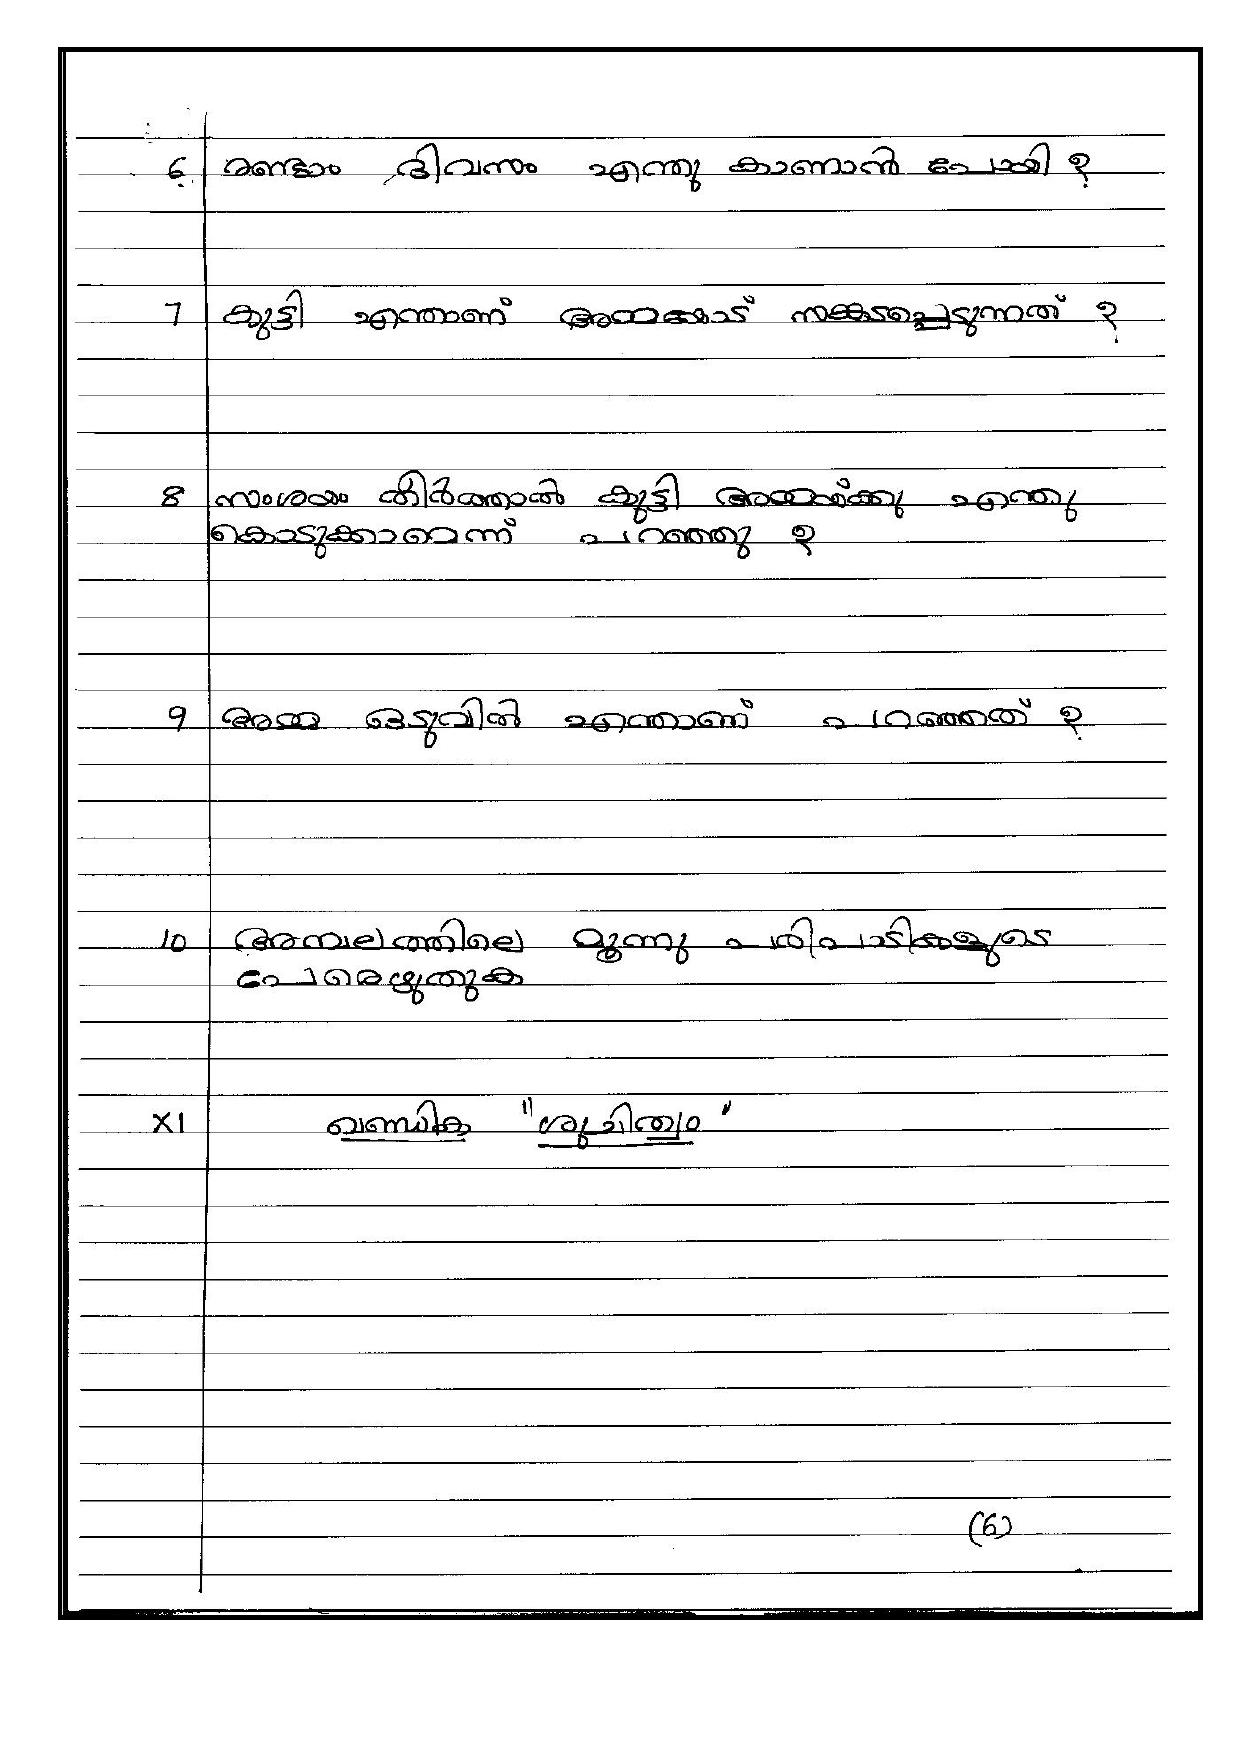 6 രണ്ടാം ദിവസം എന്തു കാണാൻ പോയി ?
7 കുട്ടി എന്താണ് അമ്മയോട് സങ്കടപ്പെടുന്നത് ?
8 സംശയം തീർത്താൽ കുട്ടി അമ്മയ്ക്കു എന്തു
കൊടുക്കാമെന്ന് പറഞ്ഞു ?
9 അമ്മ ഒടുവിൽ എന്താണ് പറഞ്ഞത് ?
10 അമ്പലത്തിലെ മൂന്നു പരിപാടികളുടെ
പേരെഴുതുക
XI ഖണ്ഡിക "ശുചിത്വം"
(6)